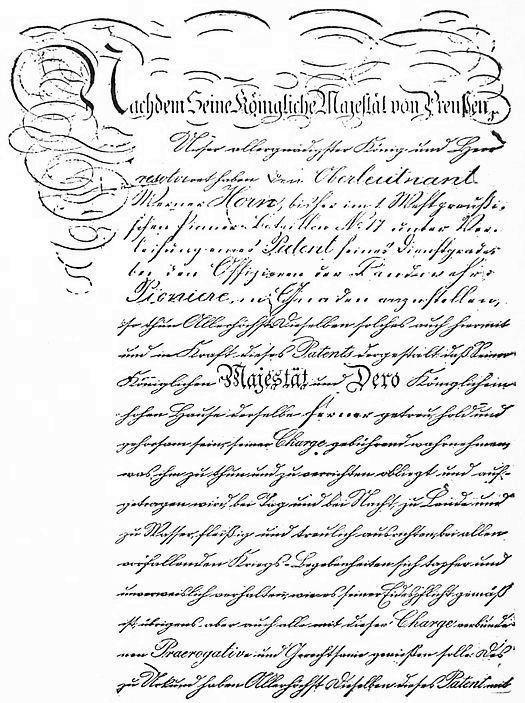 Nachdem Seine Königliche Majestät von Preußen,
Unser allergnädigster König und Herr
resolvirt haben den Oberleutnant
Werner Horn, bisher im 1. Westpreußi-
schen Pionier-Bataillon No 17 unter Ver-
leihung eines Patent seines Dienstgrades
bei den Offizieren der Landwehr-
Pioniere, in Gnaden anzustellen,
so thun Allerhöchst Dieselben solches auch hiermit
und in Kraft dieses Patents dergestalt, daß Seiner
Königlichen Majestät und Dero Königlichem
hohen Hause derselbe ferner getreu, hold und
gehorsam sein, seiner Charge gebührend wahrnehmen,
was ihm zu thun und zu verrichten obliegt und auf-
getragen wird, bei Tag und bei Nacht, zu Lande und
zu Wasser, fleißig und treulich ausrichten, bei allen
vorfallenden Kriegs-Begebenheiten sich tapfer und
unverweislich verhalten, wie es seiner Eidespflicht gemäß
ist, übrigens aber auch alle mit dieser Charge verbunde-
nen Praerogative und Gerechtsame genießen solle. Des
zu Urkund haben Allerhöchst Dieselben dieses Patent mit